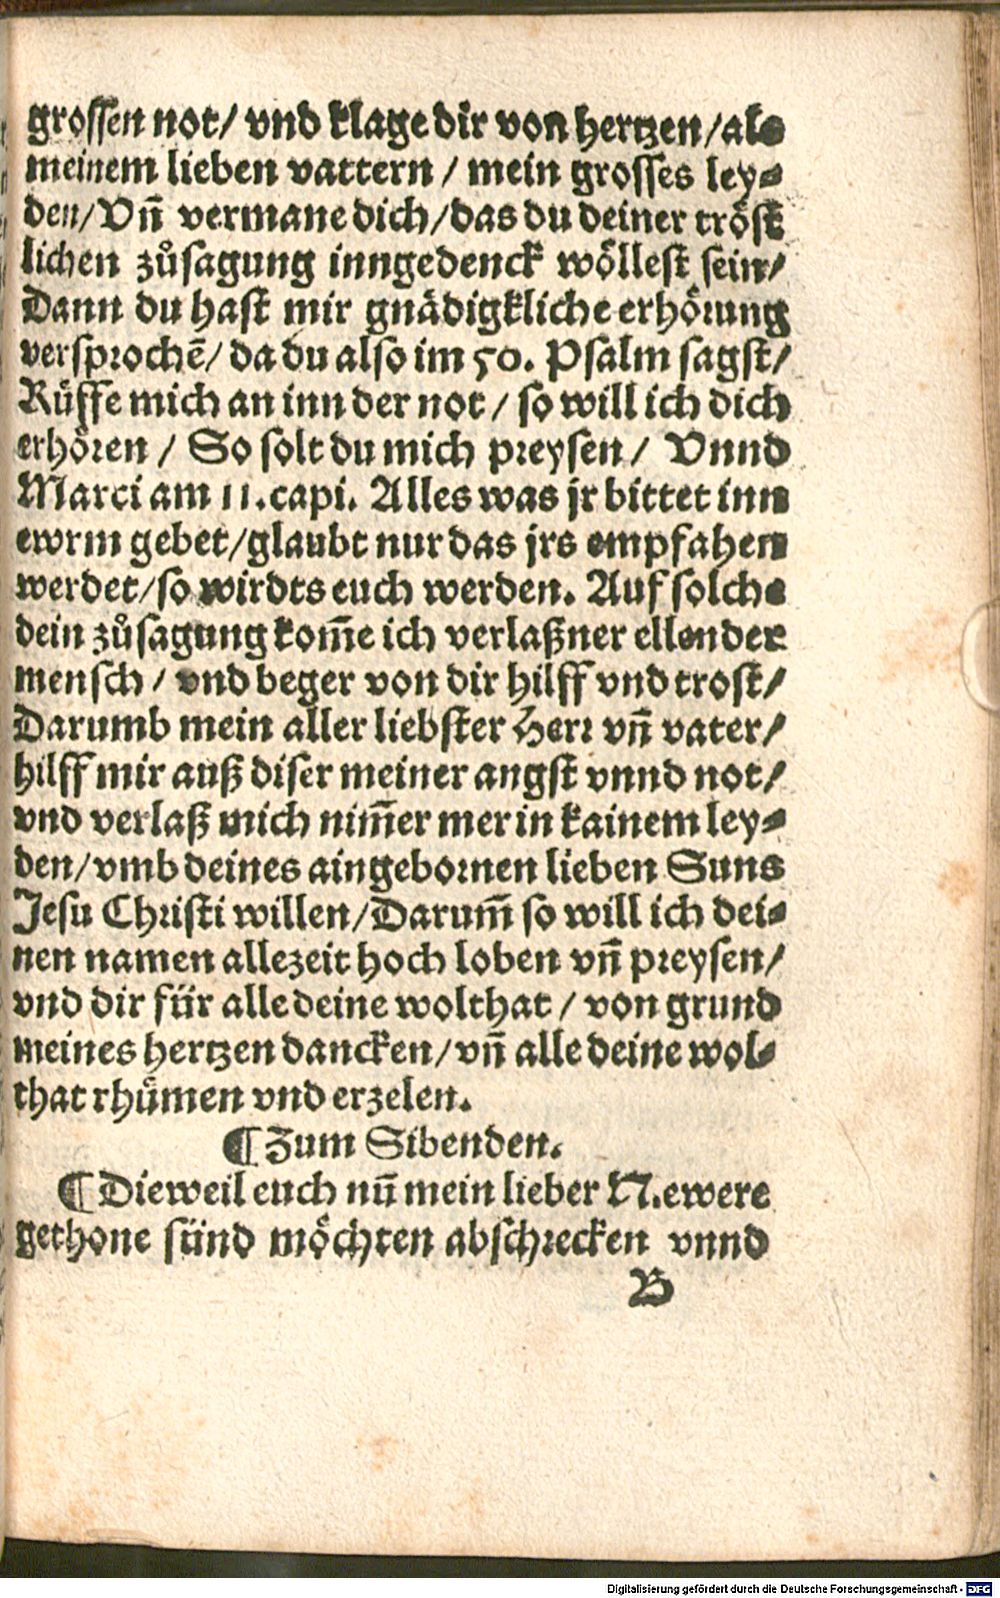 grossen not/ vnd klage dir von hertzen/als
meinem lieben vattern / mein grosses ley-
den/Vn̄ vermane dich/das du deiner tröst
lichen zůsagung inngedenck wöllest sein/
Dann du hast mir gnädigkliche erhörung
versprochē/ da du also im 50. Psalm sagst/
Rüffe mich an inn der not / so will ich dich
erhören / So solt du mich preysen / Vnnd
Marci am 11.capi. Alles was jr bittet inn
ewrm gebet/glaubt nur das jrs empfahen
werdet/so wirdts euch werden. Auf solche
dein zůsagung kom̄e ich verlaßner ellender
mensch / vnd beger von dir hilff vnd trost/
Darumb mein aller liebster Herr vn̄ vater/
hilff mir auß diser meiner angst vnnd not/
vnd verlaß mich nim̄er mer in kainem ley-
den/vmb deines aingebornen lieben Suns
Jesu Christi willen/Darum̄ so will ich dei-
nen namen allezeit hoch loben vn̄ preysen/
vnd dir für alle deine wolthat / von grund
meines hertzen dancken/vn̄ alle deine wol-
that rhümen vnd erzelen.
¶ Zum Sibenden.
¶ Dieweil euch nū mein lieber N.ewere
gethone sünd möchten abschrecken vnnd
B
Digitalisierung gefördert durch die Deutsche Forschungsgemeinschaft - DFG